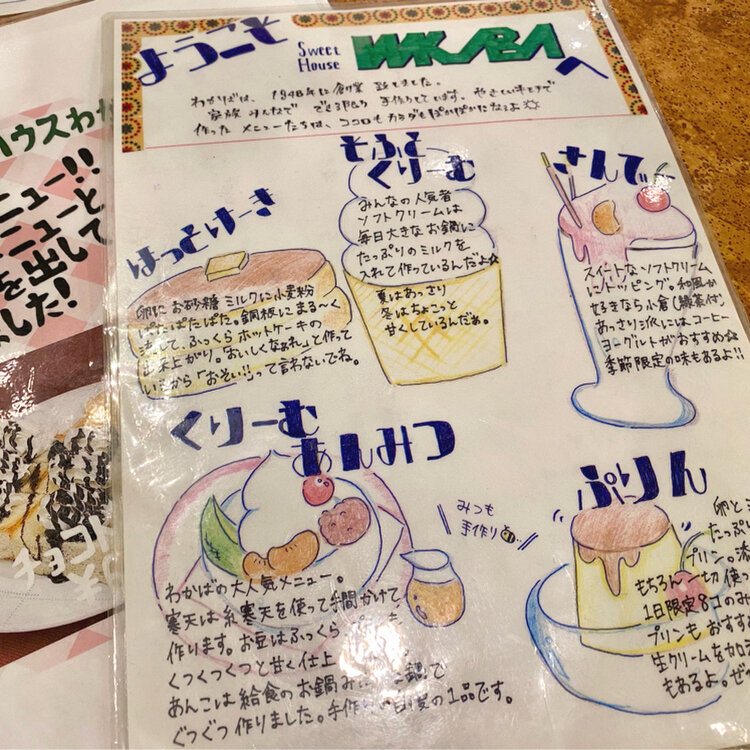 ようこそ Sweet House WAKABA へ
わかばは、1948年に創業 致しました。
家族みんなで できる限り 手作りしています。やさしいキモチで
作った メニューたちは、ココロもカラダもぽかぽかになるよ☆
はっとけーき
卵に お砂糖 ミルクに小麦粉
ぱたぱたぱた。銅板にまる〜く
流して、ふっくら ホットケーキの
出来上がり。「おいしくなぁれ」と作って
いるから「おそい!!」って言わないでね。
そふと
くりーむ
みんなの人気者
ソフトクリームは
毎日大きなお鍋に
たっぷりのミルクを
入れて作っているんだよ☆
夏はあっさり
冬はちょこっと
甘くしているんだぁ。
さんでー
スイートなソフトクリーム
にトッピング。和風が
好きなら小倉(緑茶付)
あっさり派にはコーヒー
ヨーグルトがおすすめ☆
季節限定の味もあるよ!!
くりーむ
あんみつ
みつも
手作り
わかばの大人気メニュー。
寒天は糸寒天を使って手間かけて
作ります。お豆はふっくら
くつくつくつと甘く仕上
あんこは給食のお鍋み
ぐつぐつ作りました。手作り
の1品です。
ぷりん
卵と
たっぷ
プリン。
もちろん一切使
1日限定8コのみ
プリンも おすすめ
生クリームを加え
もあるよ。ぜ
ハウスわか
ニュー!!
ニューと
を出して
した!
チョコ